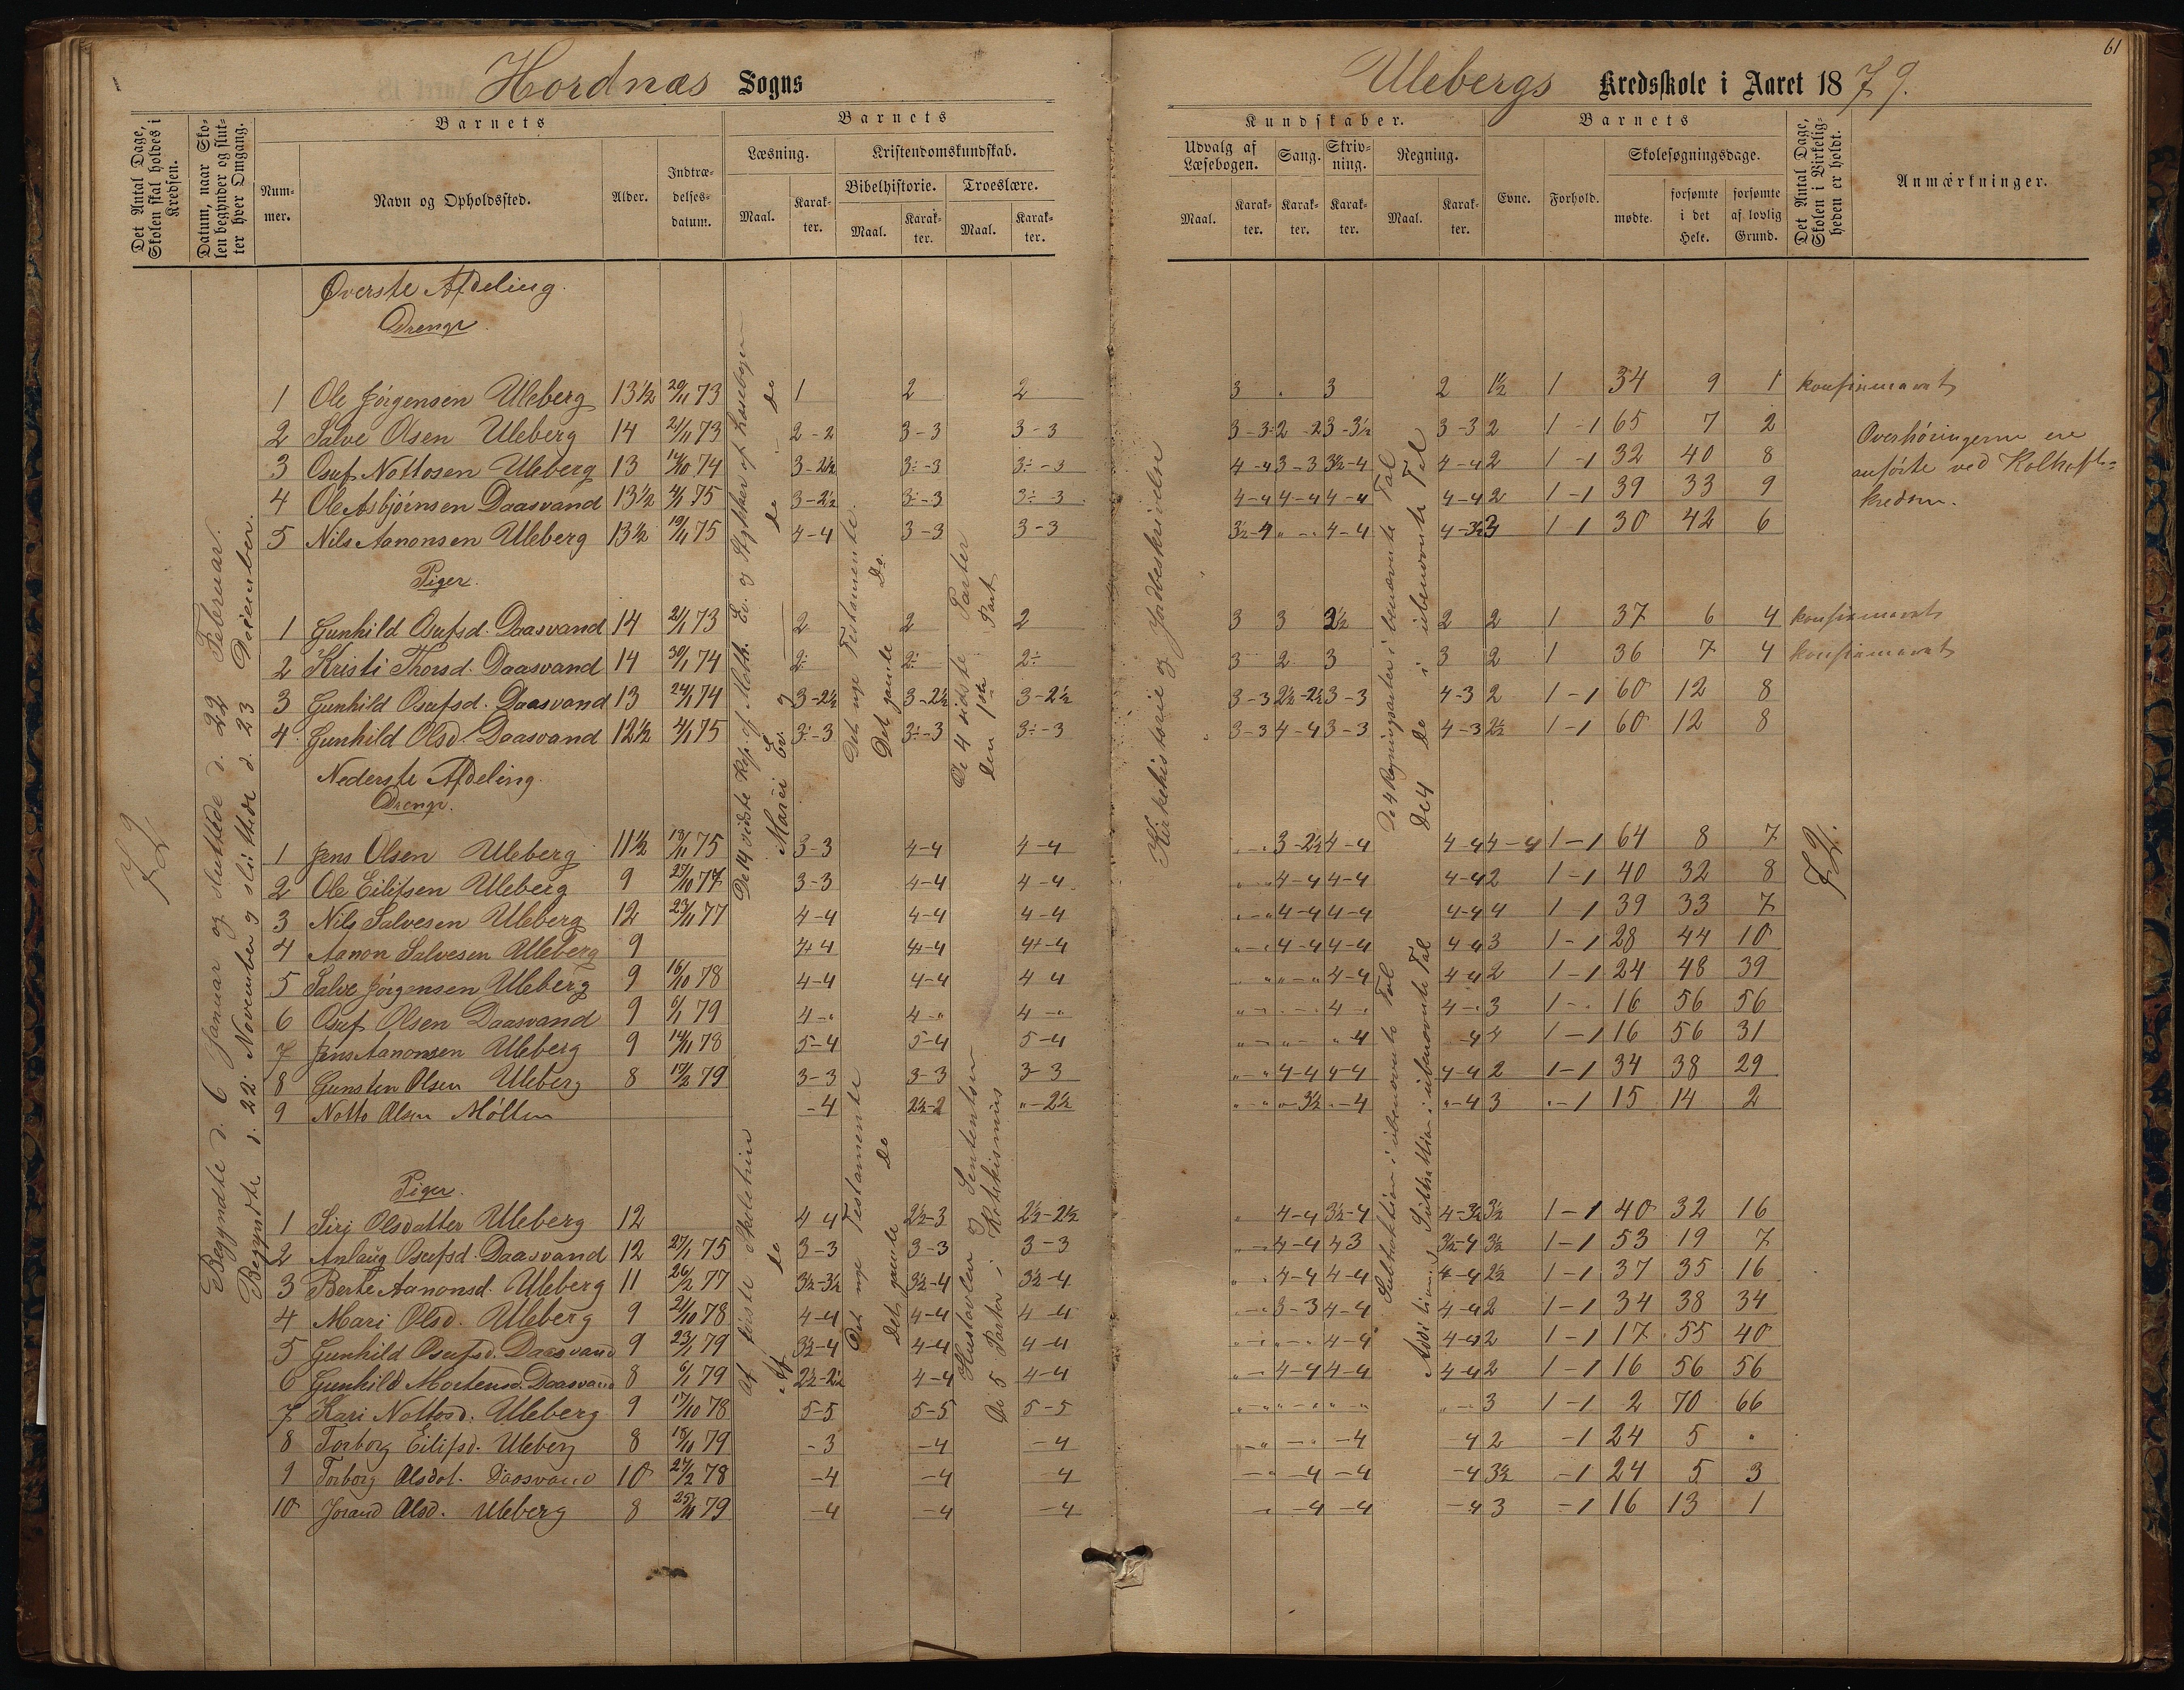 61
Hordnæs Sogns
Ulebergs Kredsskole i Aaret 1879.
Det Antal Dage, Skolen skal holdes i Kredsen.
Datum, naar Skolen begynder og slutter hver Omgang.
Barnets
Nummer.
Navn og Opholdssted.
Alder.
Indtrædelsesdatum.
Barnets
Læsning.
Maal.
Karakter.
Kristendomskundskab.
Bibelhistorie.
Maal.
Karakter.
Troeslære.
Maal.
Karakter.
Kundskaber.
Udvalg af Læsebogen.
Maal.
Karakter.
Sang.
Karakter.
Skrivning.
Karakter.
Regning.
Maal.
Karakter.
Barnets
Evne.
Forhold.
Skolesøgningsdage.
mødte.
forsømte i det Hele.
forsømte af lovlig Grund.
Det Antal Dage, Skolen i Virkeligheden er holdt.
Anmærkninger.
72
Begyndte d. 6 Januar og sluttede d. 22 Februar.
Begyndte d. 22 November og sluttede d. 23 December.
Øverste Afdeling.
Drenge
1 Ole Jørgensen Uleberg 13½ 29/11 73 1 2 2 3 . 3 2 1½ 1 34 9 1 konfirmeret
2 Salve Olsen Uleberg 14 21/11 73 2-2 3-3 3-3 3-3 2-2 3-3½ 3-3 2 1-1 65 7 2
3 Osuf Nottosen Uleberg 13 14/10 74 3-2½ 3÷-3 3÷-3 4-4 3-3 3½-4 4-4 2 1-1 32 40 8
4 Ole Asbjørnsen Daasvand 13½ 4/1 75 3-2½ 3÷-3 3÷-3 4-4 4-4 4-4 4-4 2 1-1 39 33 9
5 Nils Aanonsen Uleberg 13½ 19/11 75 4-4 3-3 3-3 3½-4 „-„ 4-4 4-3½ 3 1-1 30 42 6
Overhøringerne ere
anførte ved
kredsen.
Piger.
1 Gunhild Osufsd. Daasvand 14 21/1 73 2 2 2 3 3 2½ 2 2 1 37 6 4 konfirmeret
2 Kristi Thorsd. Daasvand 14 30/1 74 2÷ 2÷ 2÷ 3 2 3 3 2 1 36 7 4 konfirmeret
3 Gunhild Osufsd. Daasvand 13 24/1 74 3-2½ 3-2½ 3-2½ 3-3 2½-2½ 3-3 4-3 2 1-1 60 12 8
4 Gunhild Olsd. Daasvand 12½ 4/1 75 3÷-3 3÷-3 3÷-3 3-3 4-4 3-3 4-3 2½ 1-1 60 12 8
De 14 sidste Kap. af Math. Ev. og Stykker af Læsebogen
Marci Ev. og do do
Det nye Testamente.
Det gamle Do.
De 4 sidste Parter
Den 1ste Part
Kirkehistorie og Jordbeskrivelse
De 4 Regningsarter i benævnte Tal
De 4 do i ubenævnte Tal
Nederste Afdeling.
Drenge.
1 Jens Olsen Uleberg 11½ 19/11 75 3-3 4-4 4-4 „-„ 3-2½ 4-4 4-4 4-4 1-1 64 8 7
2 Ole Eilifsen Uleberg 9 27/10 77 3-3 4-4 4-4 „-„ 4-4 4-4 4-4 2 1-1 40 32 8
3 Nils Salvesen Uleberg 12 23/11 77 4-4 4-4 4-4 „-„ 4-4 4-4 4-4 4 1-1 39 33 7
4 Aanon Salvesen Uleberg 9 4+4 4+4 4+-4 „-„ 4-4 4-4 4-4 3 1-1 28 44 10
5 Salve Jørgensen Uleberg 9 16/10 78 4-4 4-4 4 4 „-„ „-„ 4-4 4-4 2 1-1 24 48 39
6 Osuf Olsen Daasvand 9 6/1 79 4-„ 4-„ 4-„ „-„ „-„ 4-„ 4-„ 3 1-„ 16 56 56
7 Jens Aanonsen Uleberg 9 14/11 78 5-4 5-4 5-4 „-„ „-„ „-4 -4 4 1-1 16 56 31
8 Gunsten Olsen Uleberg 8 17/2 79 3-3 3-3 3-3 „-„ 4-4 4-4 4-4 2 1-1 34 38 29
9 Notto Olsen Møllen -4 2½-2 „-2½ „-„ „-3½ „-4 „-4 3 „-1 15 14 2
72.
Piger.
1 Siri Olsdatter Uleberg 12 4-4 2½-3 2½-2½ „ 4-4 3½-4 4-3½ 3½ 1-1 40 32 16
2 Anlaug Osufsd. Daasvand 12 27/1 75 3-3 3-3 3-3 „-„ 4-4 4 3 3½-4 3½ 1-1 53 19 7
3 Berte Aanonsd. Uleberg 11 26/2 77 3½-3½ 3½-4 3½-4 „-„ 4-4 4-4 4-4 2½ 1-1 37 35 16
4 Mari Olsd. Uleberg 9 21/10 78 4-4 4-4 4-4 „-„ 3-3 4-4 4-4 2 1-1 34 38 34
5 Gunhild Osufsd. Daasvand 9 23/1 79 3½-4 4-4 4-4 „-„ „-„ 4-4 4-4 2 1-1 17 55 40
6 Gunhild Mortensd. Daasvand 8 6/1 79 2½-2½ 4-4 4-4 „-„ 4-4 4-4 4-4 2 1-1 16 56 56
7 Kari Nottosd. Uleberg 9 17/10 78 5-5 5-5 5-5 „-„ „-„ „-„ „-„ 3 1-1 2 70 66
8 Torborg Eilifsd. Uleberg 8 18/11 79 -3 -4 -4 „-„ -„ -4 -4 2 -1 24 5 „
9 Torborg Olsdat. Daasvand 10 27/2 78 -4 -4 -4 -„ -4 -4 -4 3½ -1 24 5 3
10 Jorand Olsd. Uleberg 8 25/11 79 -4 -4 -4 -„ -4 -4 -4 3 -1 16 13 1
Af første Skoletrin
Af do
Det nye Testamente
Det gamle Do
Hustavlen og Sententser
De 5 Parter i Katekismus
Subtraktion i ubenævnte Tal
Addition og Subtraktion i ubenævnte Tal